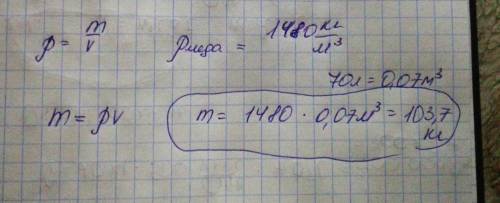 ρ = m/v ρмеда = 1480 кг/м³
70л = 0,07м³
m = ρv m = 1480 · 0,07м³ = 103,7
кг